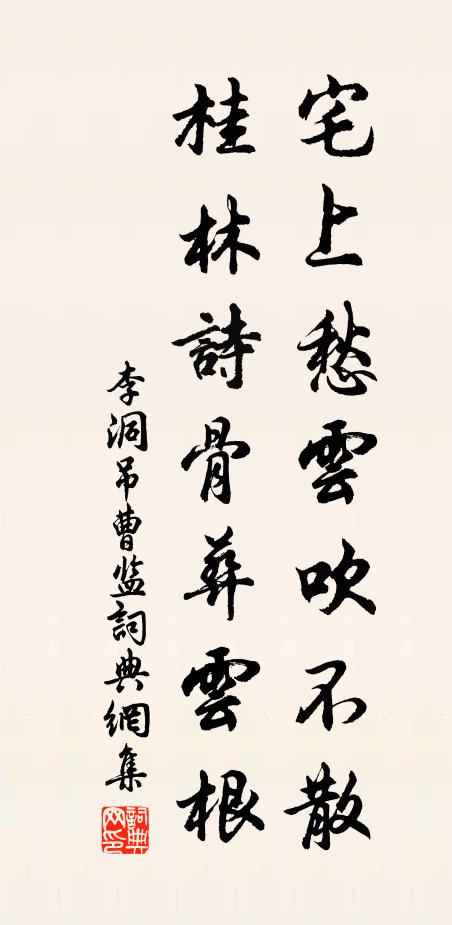 宅上愁雲吹不散
桂林詩骨葬雲根
李洞吊曹监詞典網集
詞典网印